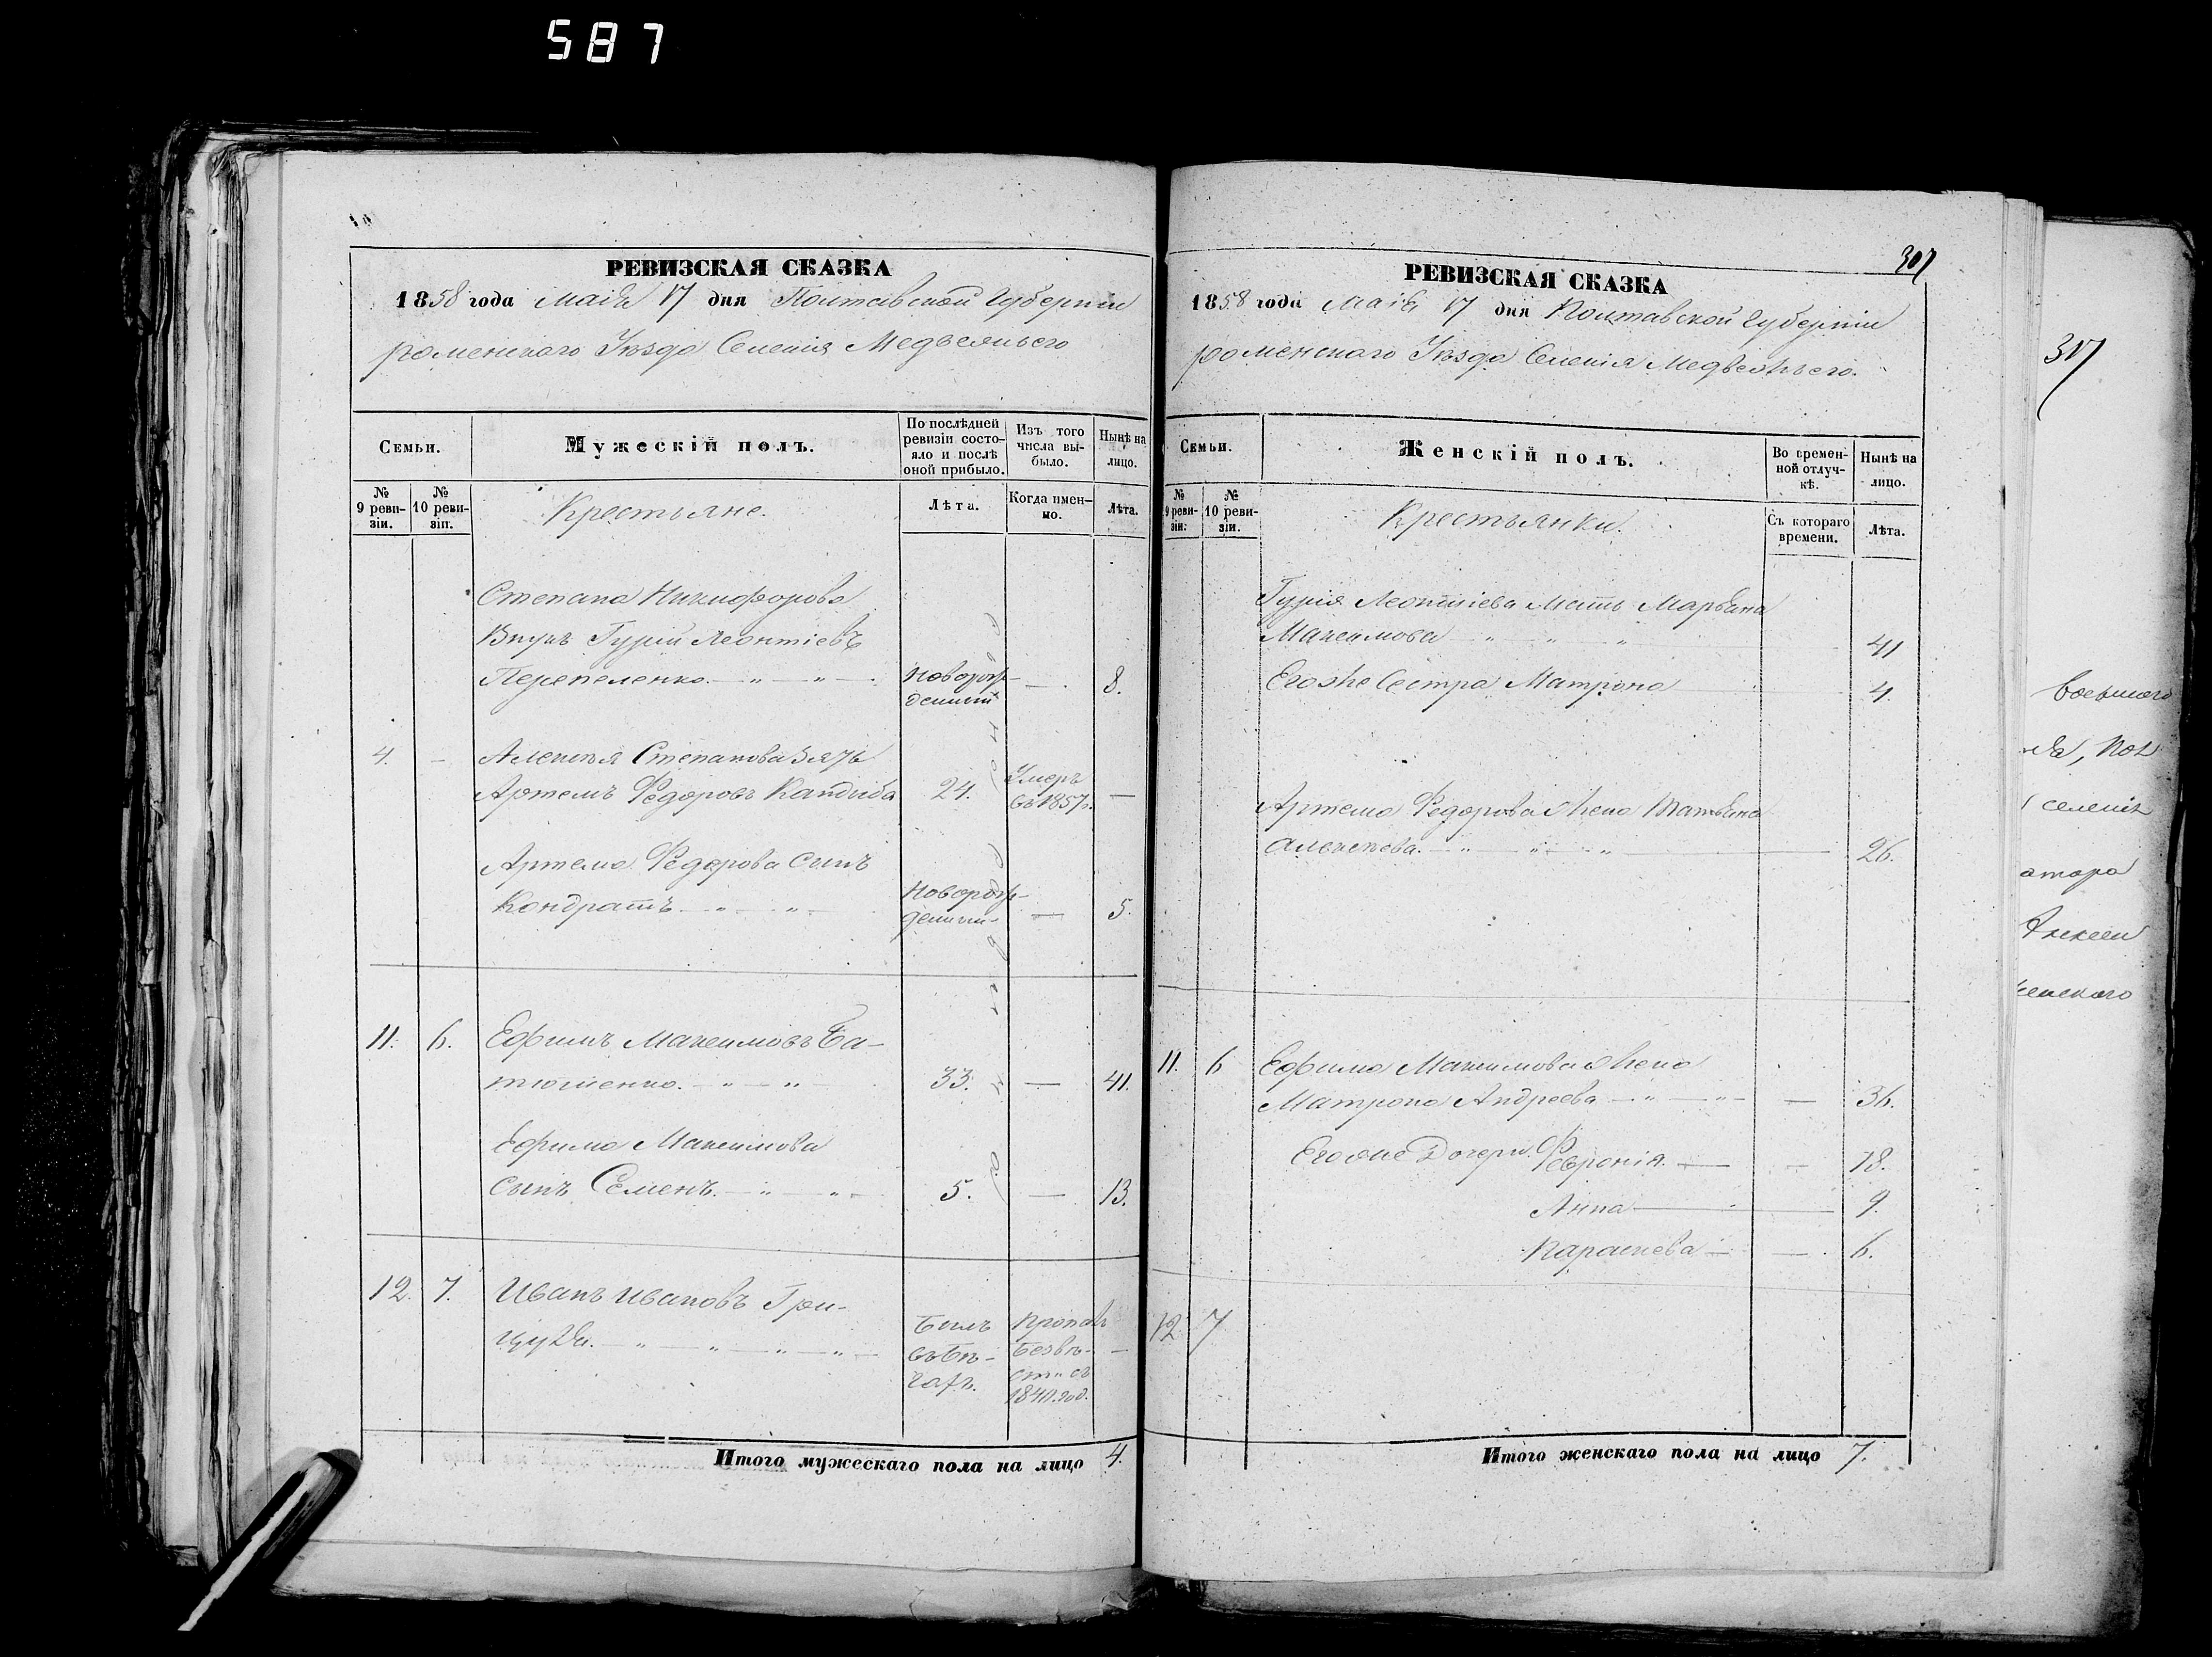 587
РЕВИЗСКАЯ СКАЗКА
1858 года Маія 17 дня Полтавской Губерніи
роменскаго Уѣзда Селенія Медвежьего
Семьи.
Мужескій полъ.
По послѣдней ревизіи состояло и послѣ оной прибыло.
Изъ того числа выбыло.
Нынѣ на лицо.
№ 9 ревизіи.
№ 10 ревизіи.
Крестьяне.
Лѣта.
Когда именно.
Лѣта.
Степана Никифорова
Внукъ Гурій Леонтіевъ
Перепеленко. — " — " — Новорожденный — 8.
4. — Алексѣя Степанова Зять
Артемъ Федоровъ Кандыба 24. Умеръ въ 1857г. —
Артема Федорова сынъ
Кондратъ — " — " — Новорожденный — 5.
11. 6. Ефимъ Максимовъ Ба-
тюшенко. — " — " 33. — 41.
Ефима Максимова
сынъ Семенъ. — " — " — 5. — 13.
12. 7. Иванъ Ивановъ Гри-
Былъ въ бѣгахъ. Пропалъ Безвѣст. съ год. —
Итого мужескаго пола на лицо 4.
307
РЕВИЗСКАЯ СКАЗКА
1858 года Маія 17 дня Полтавской Губерніи
роменскаго Уѣзда Селенія Медвежьего.
Семьи.
Женскій полъ.
Во временной отлучкѣ.
Нынѣ на лицо.
№ 9 ревизіи.
№ 10 ревизіи.
Крестьянки.
Съ котораго времени.
Лѣта.
Гурія Леонтіева Мать Марьяна
Максимова — " — " — " 41
Егоже Сестра Матрона 4.
Артема Федорова Жена Татьяна
Алексѣева. — " — " — " 26.
11. 6 Ефима Максимова Жена
Матрона Андреева — " — " — — 36.
Егоже Дочери. Февронія. — — 18.
Анна — 9.
Параскева — — 6.
12 7
Итого женскаго пола на лицо 7.
317
селенія